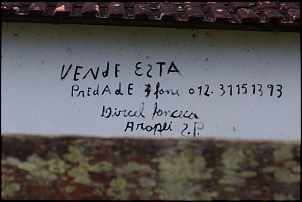 VENDE ESTA
PredAdE fone 012.31151393
Dircel fonseca
Aropei S.P.